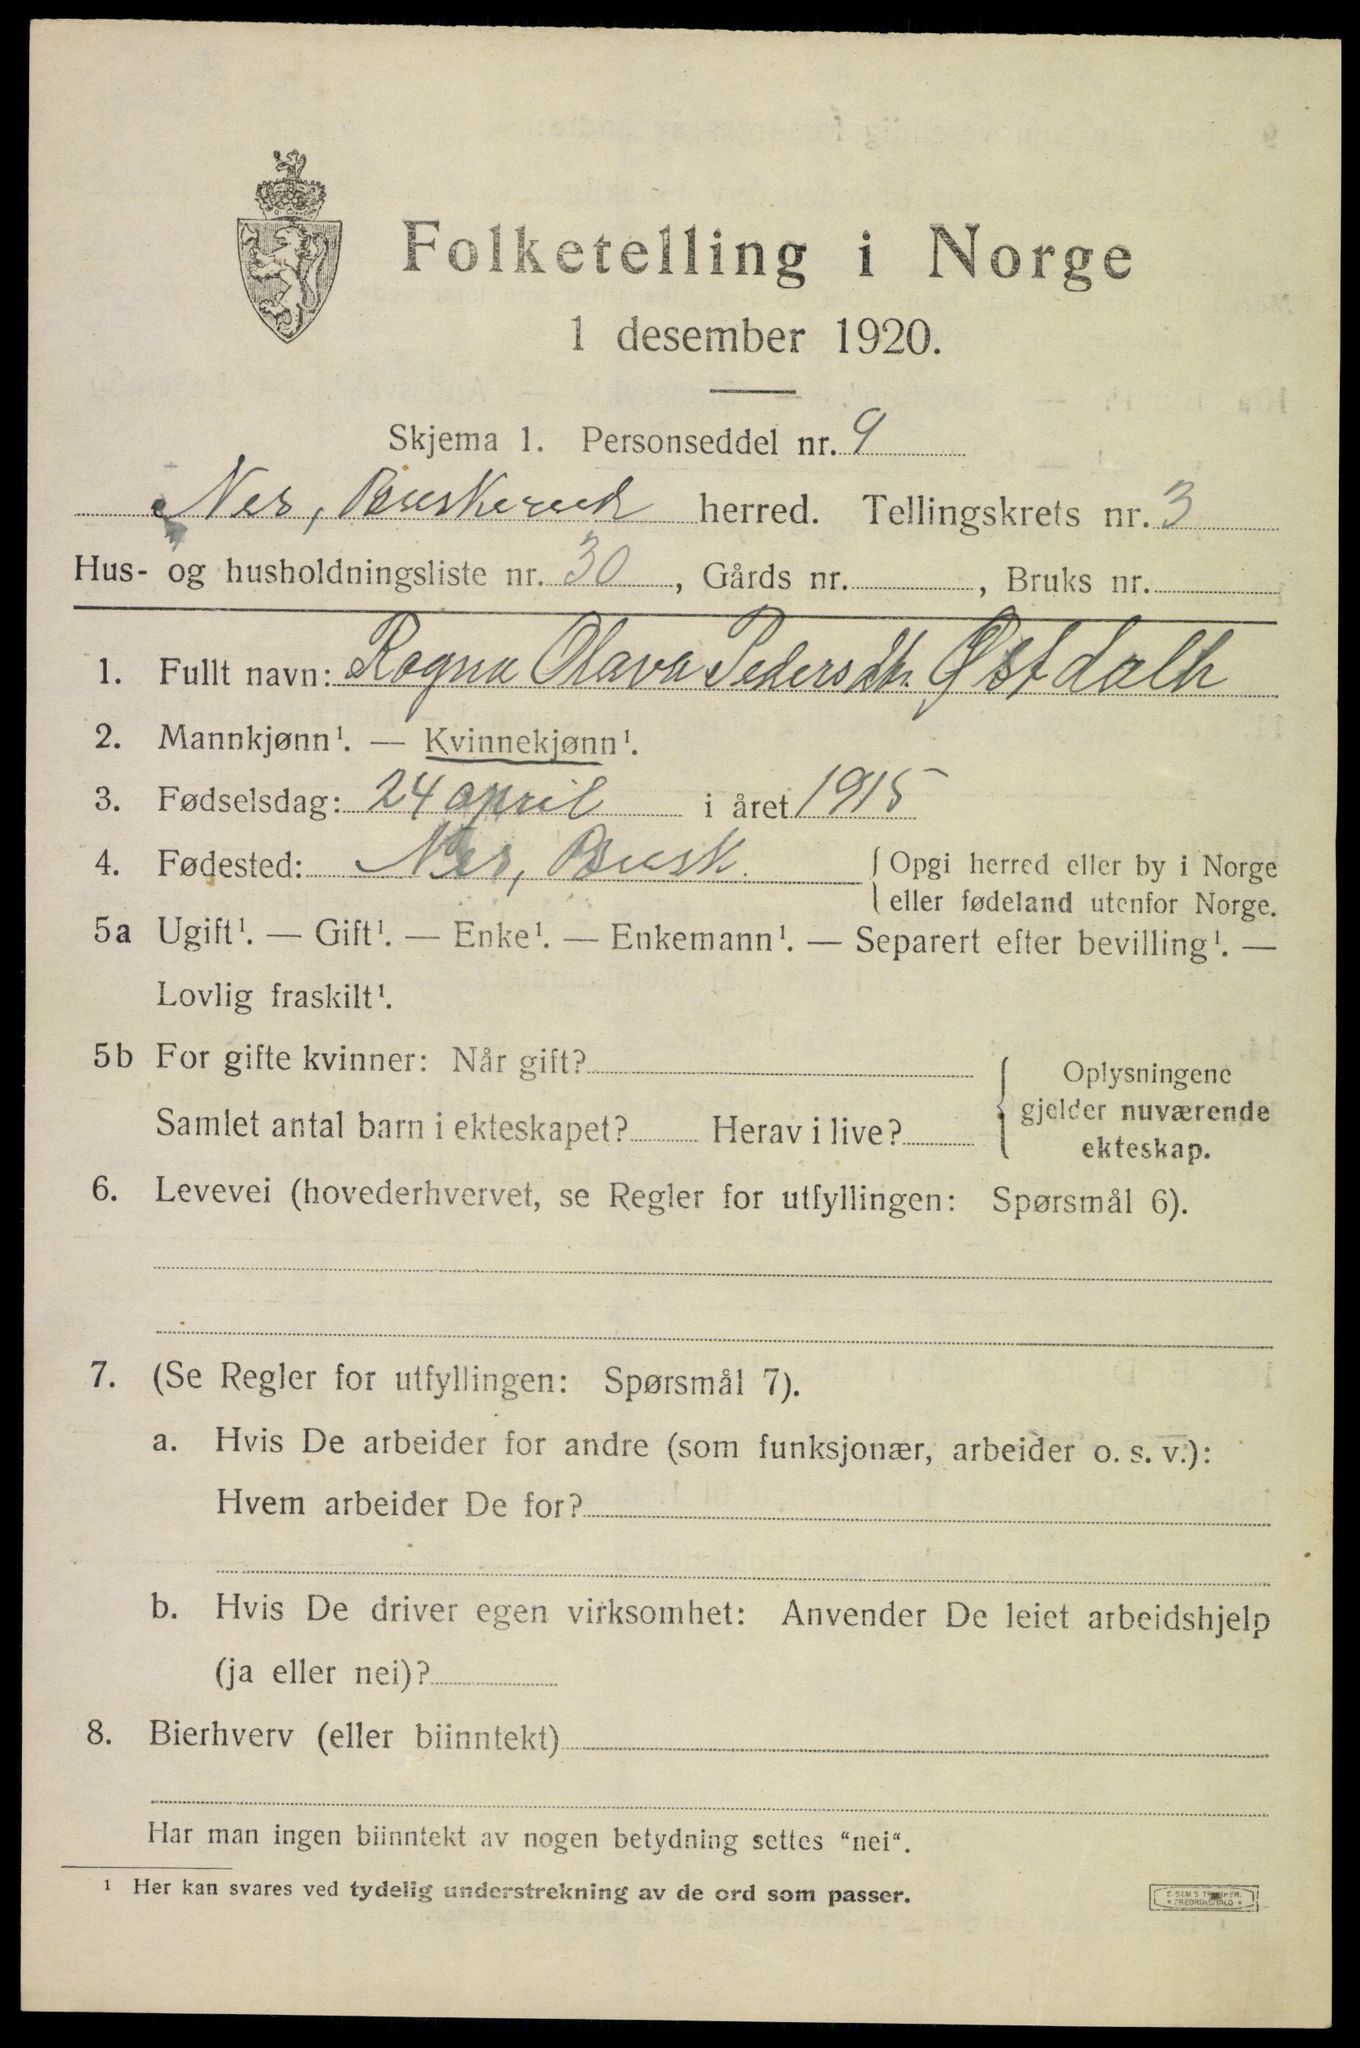 Folketelling i Norge
1 desember 1920.
Skjema 1. Personseddel nr. 9
Nes, Buskerud herred. Tellingskrets nr. 3
Hus- og husholdningsliste nr. 30, Gårds nr. , Bruks nr.
1. Fullt navn: Ragna Olava Pedersdtr. Østdalh
2. Mannkjønn¹. — Kvinnekjønn¹.
3. Fødselsdag: 24 april i året 1915
4. Fødested: Nes, Busk. { Opgi herred eller by i Norge
eller fødeland utenfor Norge.
5a Ugift¹. — Gift¹. — Enke¹. — Enkemann¹. — Separert efter bevilling¹. —
Lovlig fraskilt¹.
5b For gifte kvinner: Når gift?
Samlet antal barn i ekteskapet? Herav i live?
Oplysningene
gjelder nuværende
ekteskap.
6. Levevei (hovederhvervet, se Regler for utfyllingen: Spørsmål 6).
7. (Se Regler for utfyllingen: Spørsmål 7).
a. Hvis De arbeider for andre (som funksjonær, arbeider o. s. v.):
Hvem arbeider De for?
b. Hvis De driver egen virksomhet: Anvender De leiet arbeidshjelp
(ja eller nei)?
8. Bierhverv (eller biinntekt)
Har man ingen biinntekt av nogen betydning settes "nei".
¹ Her kan svares ved tydelig understrekning av de ord som passer.